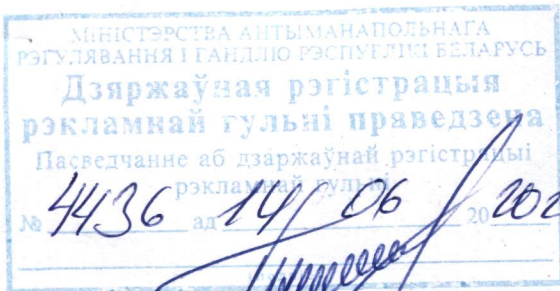 МІНІСТЭРСТВА АНТЫМАНАПОЛЬНАГА
РЭГУЛЯВАННЯ І ГАНДЛЮ РЭСПУБЛІКІ БЕЛАРУСЬ
Дзяржаўная рэгістрацыя
рэкламнай гульні праведзена
Пасведчанне аб дзяржаўнай рэгістрацыі
рэкламнай гульні
№ 4436 ад 14 06 20 202